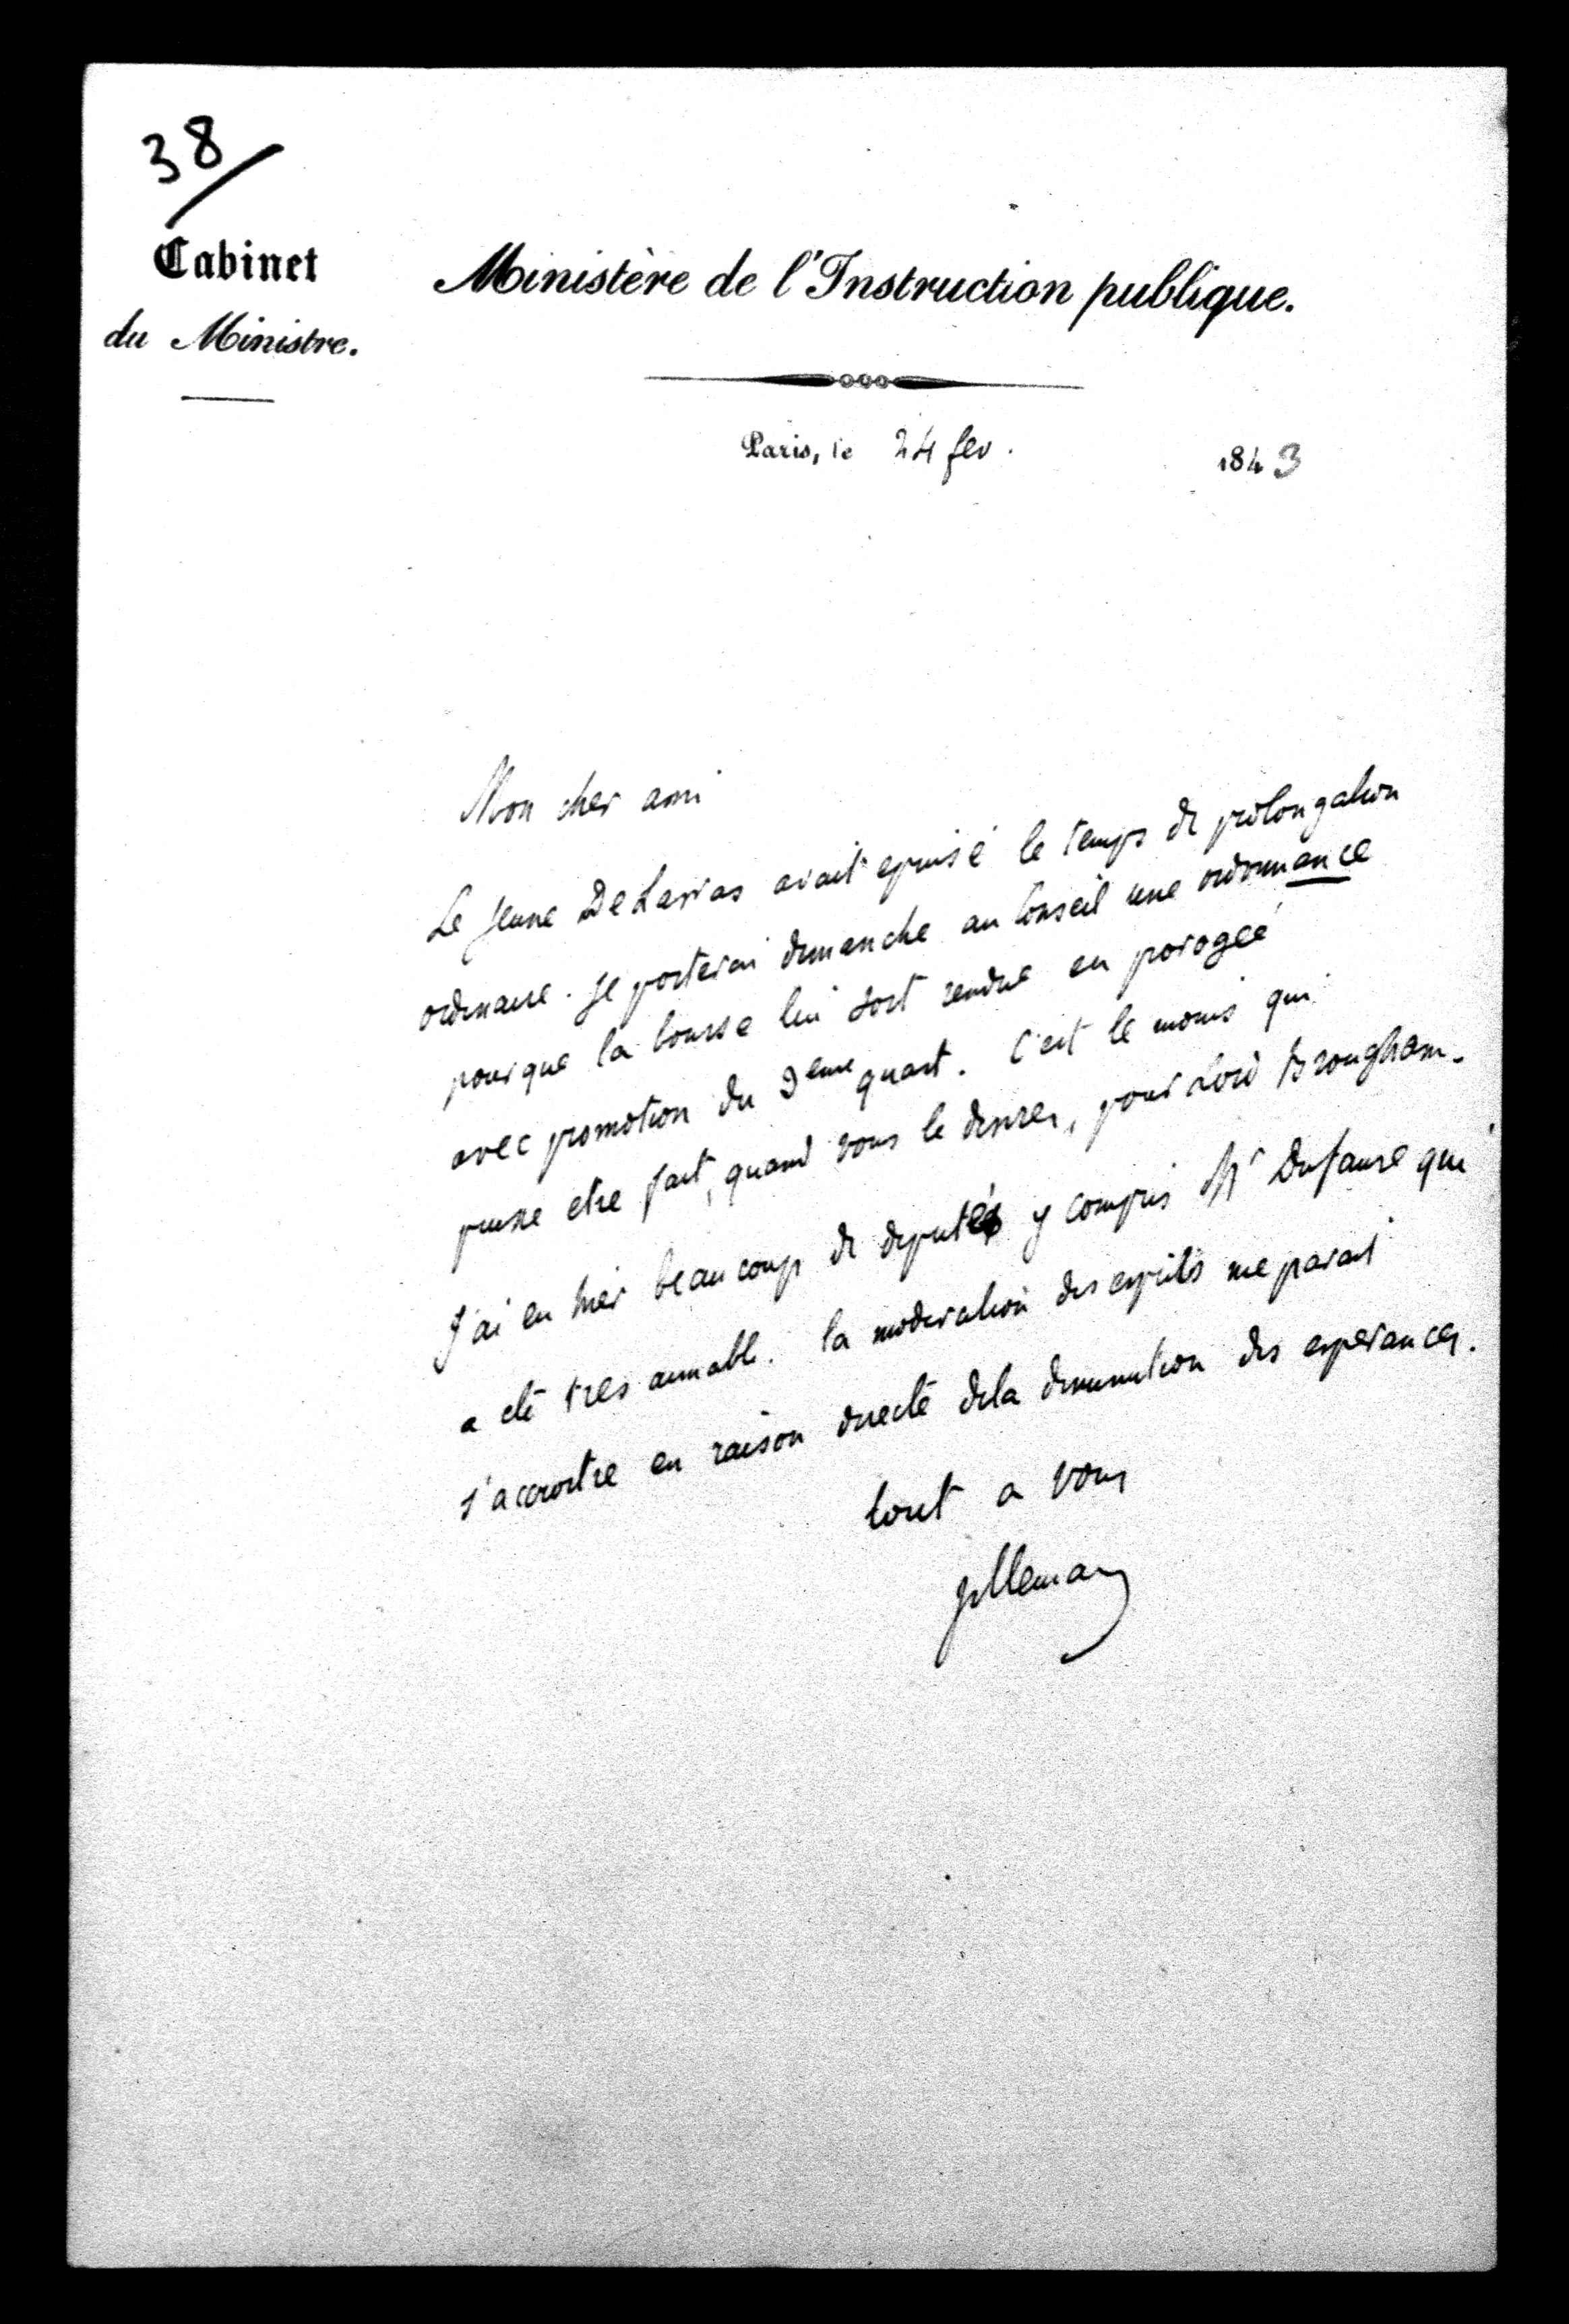 38
Cabinet
du Ministre.
Ministère de l'Instruction publique.
Paris, le 24 fev. 1843
Mon cher ami
Le jeune De avait epuisé le temps de prolongation
ordinaire. Je porterai dimanche au Conseil une ordonnance
pour que la bourse lui soit rendue en
avec promotion du 3eme quart. C'est le moins qui
puisse etre fait, quand vous le desirez, pour Lord Brougham.
J'ai eu hier beaucoup de deputés y compris Mr Dufaure qui
a eté tres aimable. la moderation des esprits me parait
s'accroitre en raison directe dela diminution des esperances.
tout a vous
Villemain